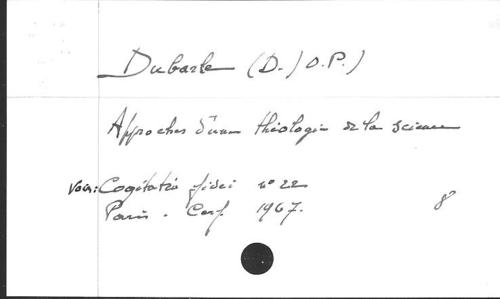 Dubarle (D.) O.P.)
Approches d'une théologie de la science
Voir: Cogitatio fidei nº 22
Paris. Cerf. 1967. 8°